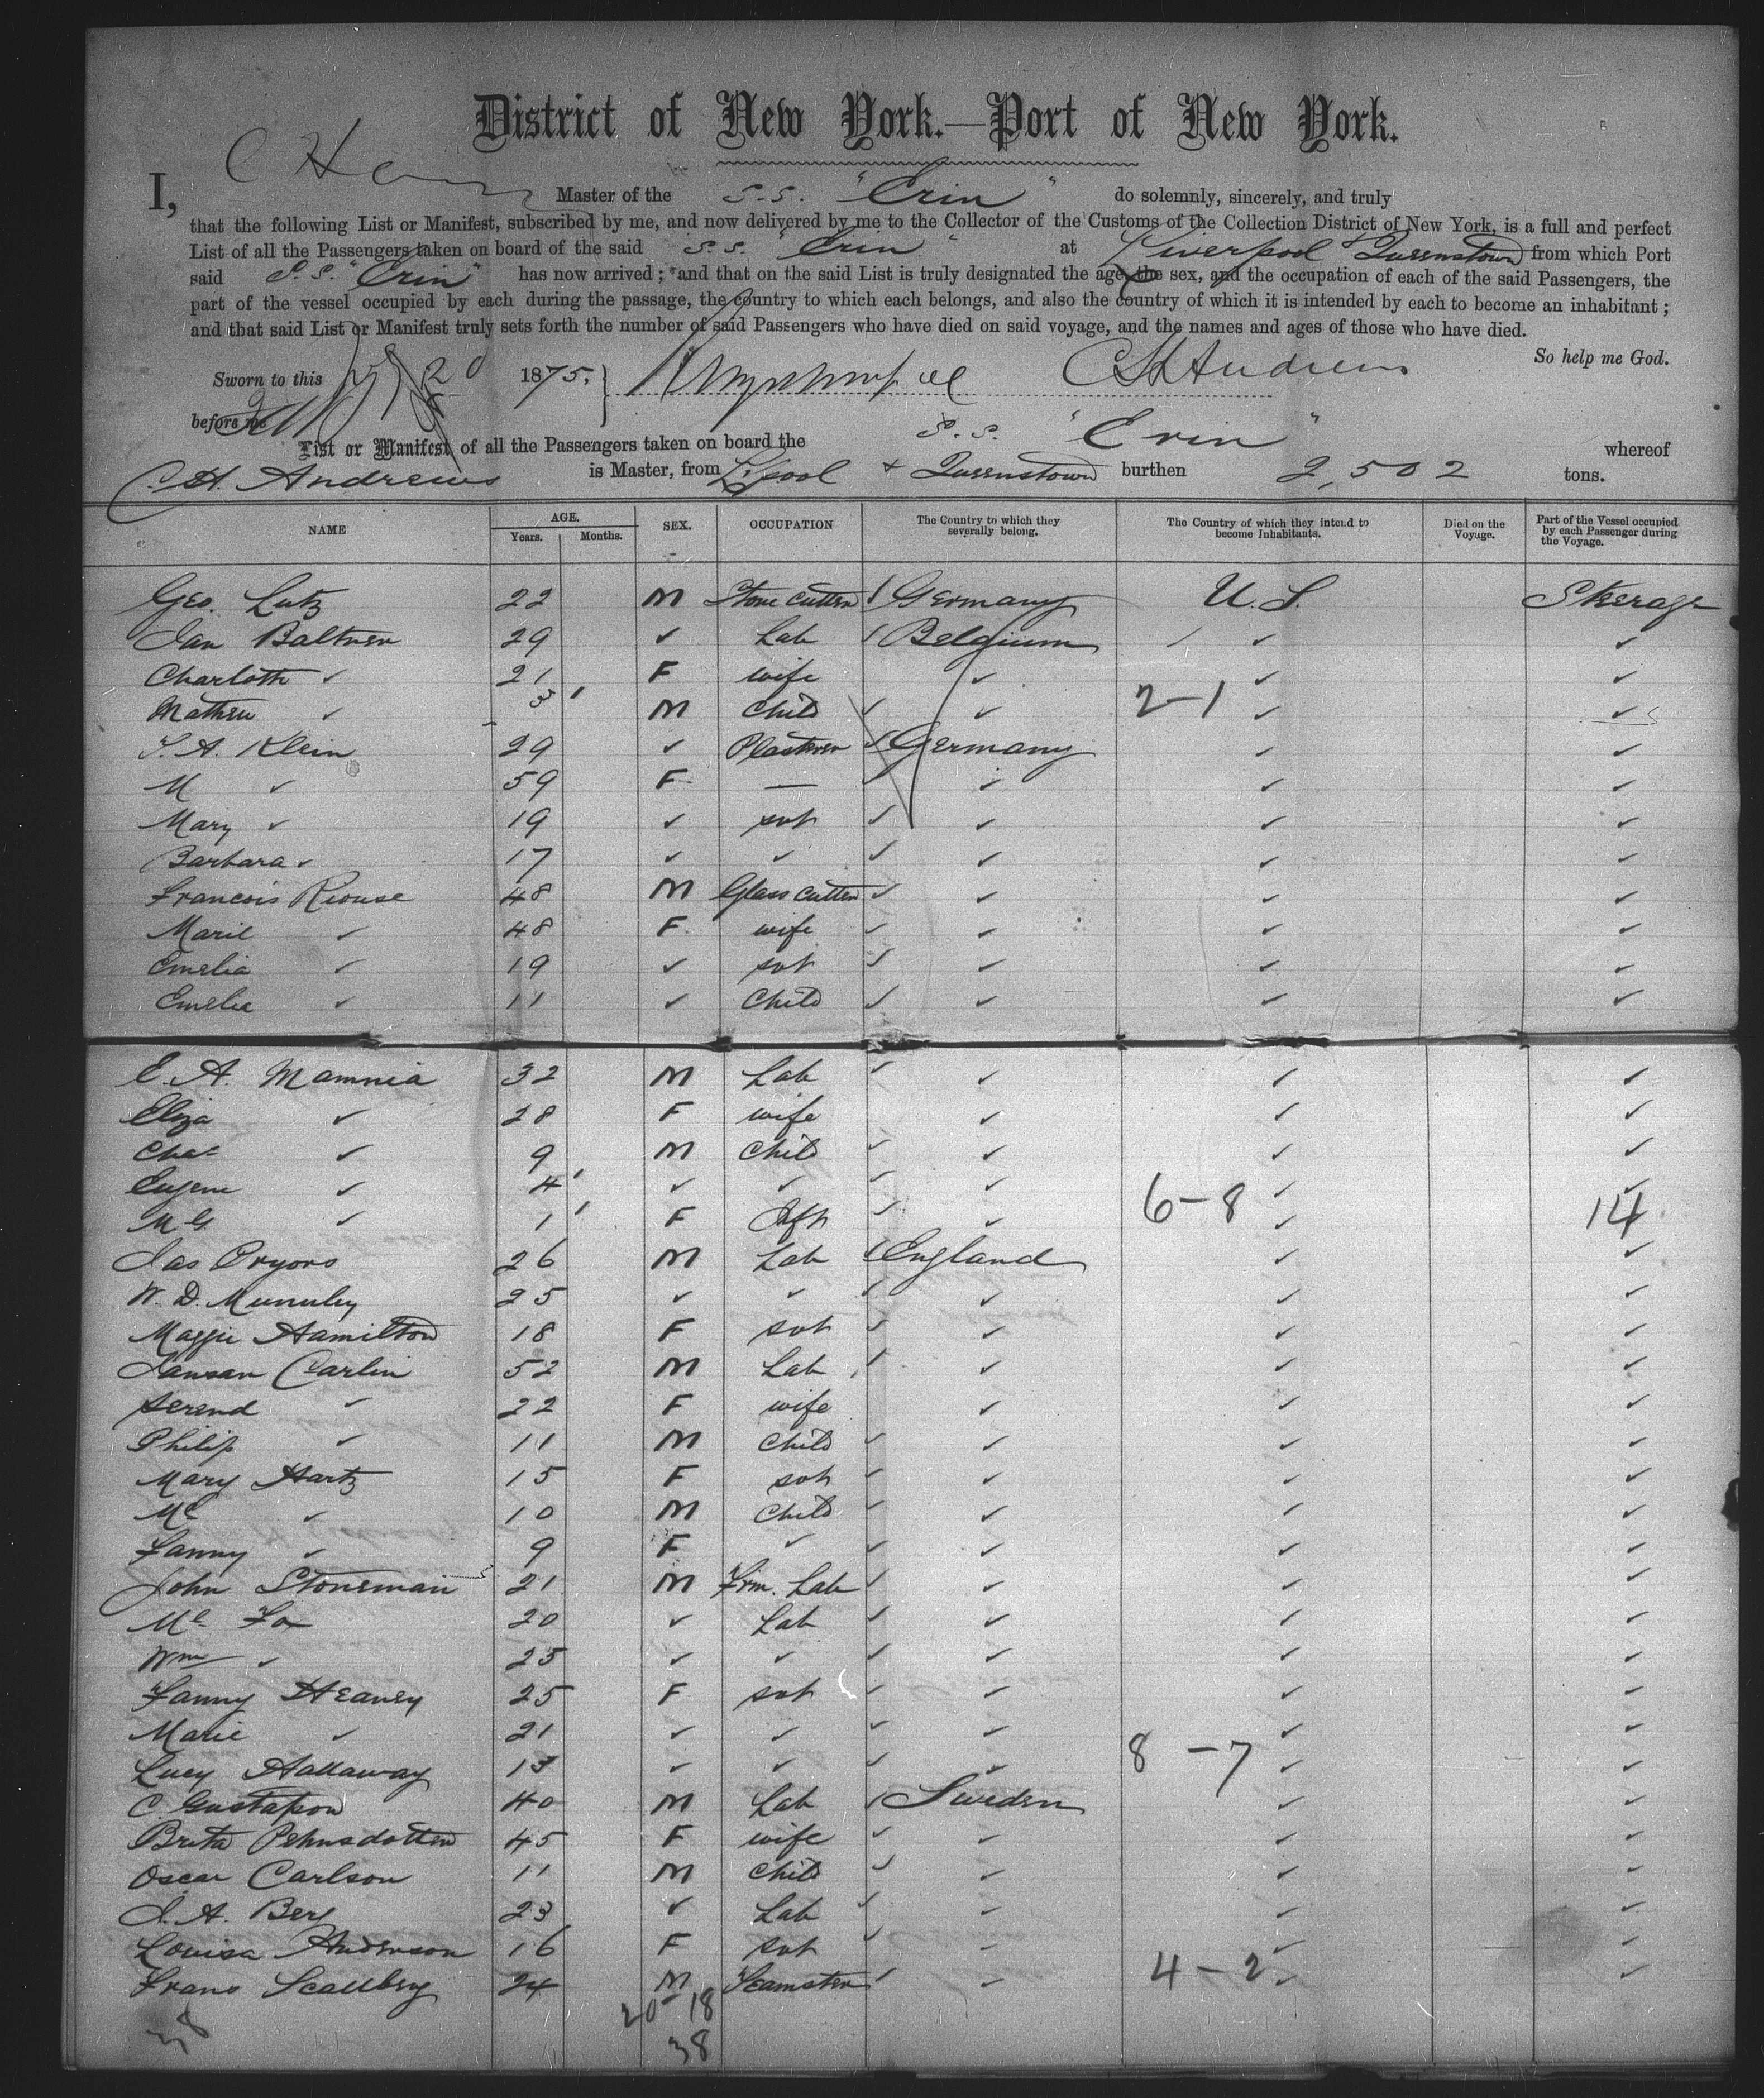 District of New York.—Port of New York.
I, Master of the S.S. "Erin" do solemnly, sincerely, and truly
that the following List or Manifest, subscribed by me, and now delivered by me to the Collector of the Customs of the Collection District of New York, is a full and perfect
List of all the Passengers taken on board of the said S.S. "Erin" at Liverpool & Queenstown from which Port
said S.S. "Erin" has now arrived; and that on the said List is truly designated the age, the sex, and the occupation of each of the said Passengers, the
part of the vessel occupied by each during the passage, the country to which each belongs, and also the country of which it is intended by each to become an inhabitant;
and that said List or Manifest truly sets forth the number of said Passengers who have died on said voyage, and the names and ages of those who have died.
So help me God.
Sworn to this 20 1875. } C H Andrews
before me
List or Manifest of all the Passengers taken on board the S.S. "Erin" whereof
C. H. Andrews is Master, from L'pool & Queenstown burthen 2,502 tons.
NAME AGE. Years. Months. SEX. OCCUPATION The Country to which they severally belong. The Country of which they intend to become Inhabitants. Died on the Voyage. Part of the Vessel occupied by each Passenger during the Voyage.
Geo. Lutz 22 M Stone cutter / Germany U.S. Steerage
Jan Baltner 29 ✓ Lab / Belgium / ✓ ✓
Charlotte ✓ 21 F wife ✓ ✓ ✓
Mathew ✓ 3 M Child ✓ ✓ 2-1 ✓ ✓
A. Klein 29 ✓ Plasterer ✓ Germany ✓ ✓
M ✓ 59 F — ✓ ✓ ✓ ✓
Mary ✓ 19 ✓ svt ✓ ✓ ✓ ✓
Barbara ✓ 17 ✓ ✓ ✓ ✓ ✓ ✓
Francois Riouse 48 M Glass cutter ✓ ✓ ✓ ✓
Marie ✓ 48 F wife ✓ ✓ ✓ ✓
Emelia ✓ 19 ✓ svt ✓ ✓ ✓ ✓
Emelie ✓ 11 ✓ Child ✓ ✓ ✓ ✓
E. A. Mamnia 32 M Lab ✓ ✓ ✓ ✓
Eliza ✓ 28 F wife ✓ ✓ ✓
Chas ✓ 9 M Child ✓ ✓ ✓ ✓
Eugene ✓ 4 ✓ ✓ ✓ ✓ 6-8 ✓ ✓
M G. ✓ 1 F Inft ✓ ✓ ✓ 14
Jas Pryors 26 M Lab / England ✓ ✓
W. D. 25 ✓ ✓ ✓ ✓ ✓ ✓
Maggie Hamilton 18 F svt ✓ ✓ ✓ ✓
Carlin 52 M Lab / ✓ ✓ ✓
Serend ✓ 22 F wife ✓ ✓ ✓
Philip ✓ 11 M Child ✓ ✓ ✓ ✓
Mary Hartz 15 F svt ✓ ✓ ✓ ✓
Ml ✓ 10 M Child ✓ ✓ ✓ ✓
Fanny ✓ 9 F ✓ ✓ ✓ ✓ ✓
John Stoneman 21 M Frm. Lab ✓ ✓ ✓ ✓
Ml Fox 20 ✓ Lab ✓ ✓ ✓ ✓
Wm ✓ 25 ✓ ✓ ✓ ✓ ✓ ✓
Fanny Heaney 25 F svt ✓ ✓ ✓ ✓
Marie ✓ 21 ✓ ✓ ✓ ✓ ✓ ✓
Lucy Hallaway 13 ✓ ✓ ✓ ✓ 8-7 ✓ ✓
C. Gustafson 40 M Lab / Sweden ✓ ✓
Brita Pehrsdotter 45 F wife ✓ ✓ ✓ ✓
Oscar Carlson 11 M Child ✓ ✓ ✓ ✓
J. A. Berg 23 ✓ Lab ✓ ✓ ✓ ✓
Louisa Anderson 16 F svt ✓ ✓ ✓ ✓
Frans Scallberg 24 M Teamster / ✓ 4-2 ✓ ✓
20-18
38 38